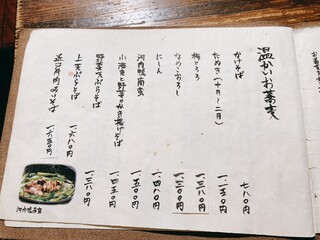 温かいお蕎麦
かけそば 七八〇円
たぬき(十月〜二月) 一一五〇円
梅とろろ 一三八〇円
なめこおろし 一三〇〇円
にしん 一四八〇円
河内鴨南蛮 一五〇〇円
小海老と野菜のかき揚げそば 一四五〇円
野菜天ぷらそば 一三八〇円
上天ぷらそば 一六八〇円
近江牛肉 そば 一六五〇円
河内鴨南蛮